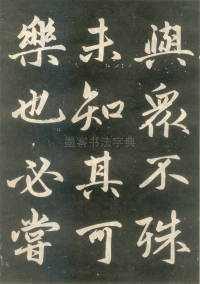 與眾不殊
未知其可
樂也必嘗
墨客书法字典